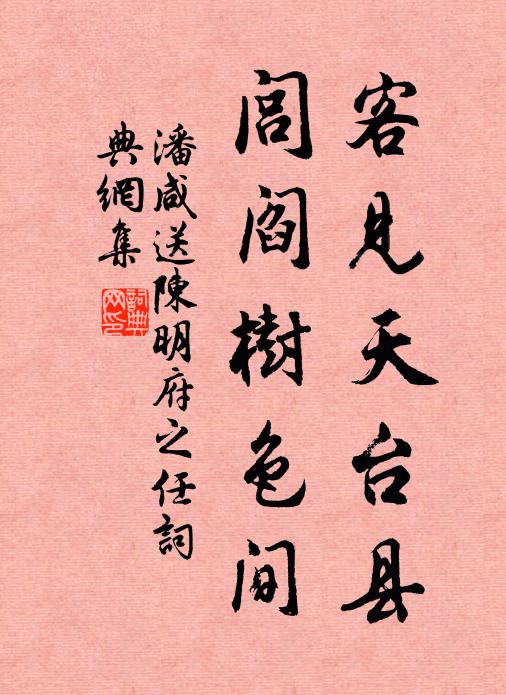 客見天台县
閭阎樹色间
潘咸送陳明府之任詞
典網集
詞典网印